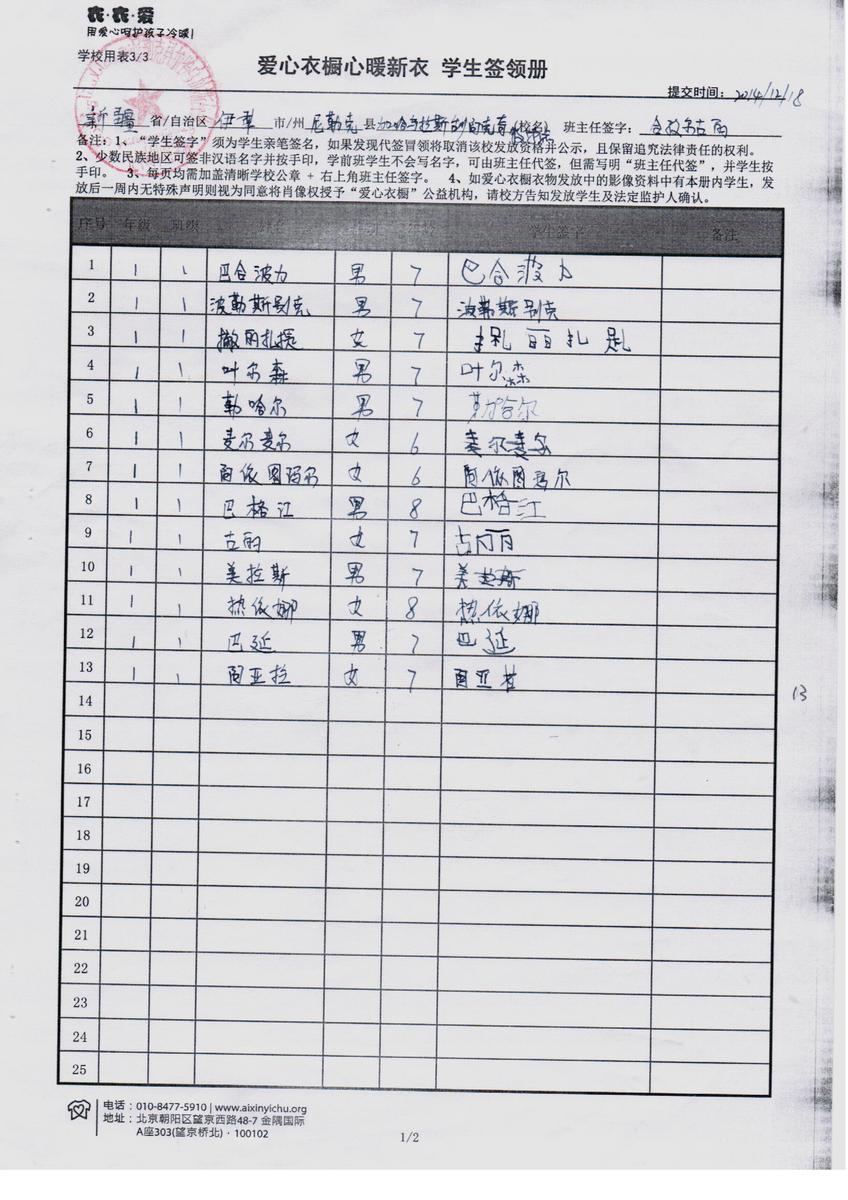 衣·衣·爱
用爱心呵护孩子冷暖!
学校用表3/3
爱心衣橱心暖新衣 学生签领册
提交时间: 2014/12/18
新疆 省/自治区 伊犁 市/州 尼勒克 县 加哈乌拉斯台 (校名) 班主任签字:
备注:1、“学生签字”须为学生亲笔签名,如果发现代签冒领将取消该校发放资格并公示,且保留追究法律责任的权利。
2、少数民族地区可签非汉语名字并按手印,学前班学生不会写名字,可由班主任代签,但需写明“班主任代签”,并学生按
手印。 3、每页均需加盖清晰学校公章 + 右上角班主任签字。 4、如爱心衣橱衣物发放中的影像资料中有本册内学生,发
放后一周内无特殊声明则视为同意将肖像权授予“爱心衣橱”公益机构,请校方告知发放学生及法定监护人确认。
序号 年级 班级 姓名 性别 年龄 学生签字 备注
1 1 1 巴合波力 男 7 巴合波力
2 1 1 波勒斯别克 男 7 波勒斯别克
3 1 1 撒丽扎提 女 7 丽扎
4 1 1 叶尔森 男 7 叶尔森
5 1 1 勒哈尔 男 7 勒哈尔
6 1 1 麦尔麦尔 女 6 麦尔麦尔
7 1 1 阿依图玛尔 女 6 阿依图玛尔
8 1 1 巴格江 男 8 巴格江
9 1 1 古丽 女 7 古丽
10 1 1 美拉斯 男 7 美拉斯
11 1 1 热依娜 女 8 热依娜
12 1 1 巴延 男 7 巴延
13 1 1 阿亚拉 女 7 阿亚拉
14
13
15
16
17
18
19
20
21
22
23
24
25
电话:010-8477-5910 | www.aixinyichu.org
地址:北京朝阳区望京西路48-7 金隅国际
A座303(望京桥北)·100102
1/2